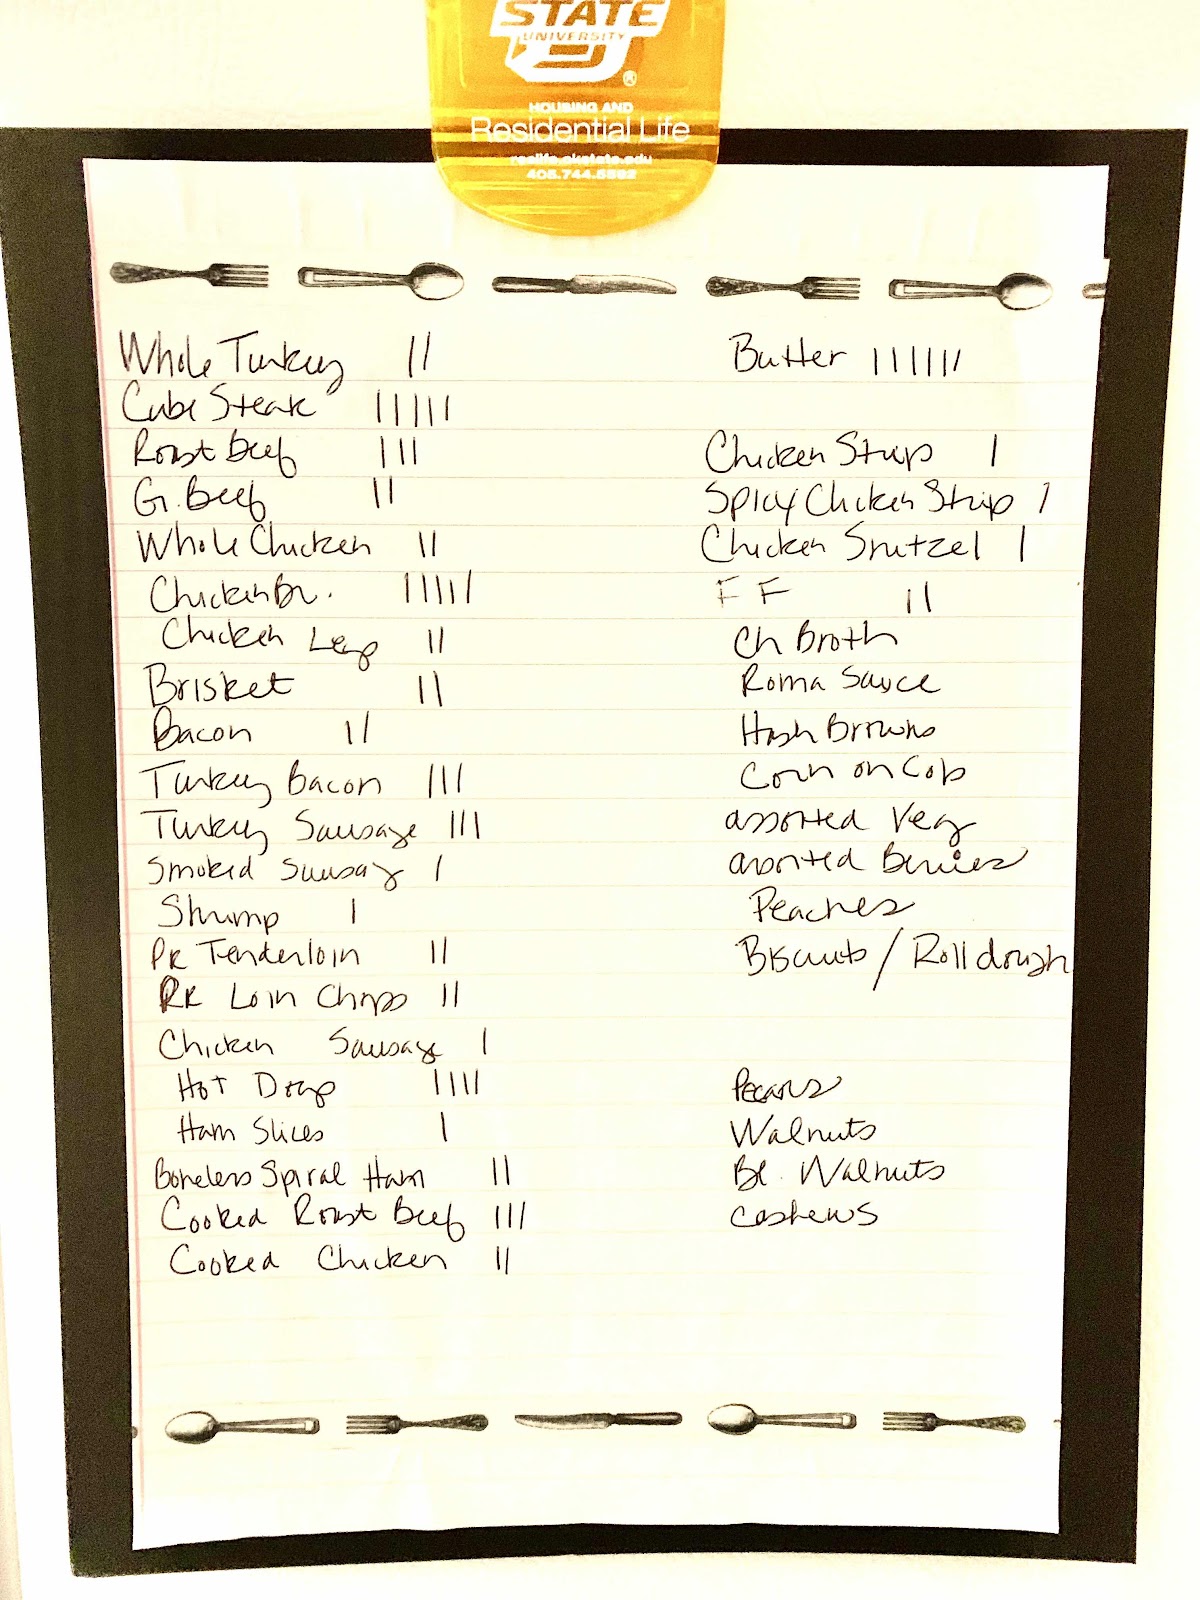 STATE
UNIVERSITY
®
HOUSING AND
Residential Life
reslife.okstate.edu
405.744.5592
Whole Turkey ||
Cube Steak |||||
Roast Beef |||
G. Beef ||
Whole Chicken ||
Chicken Br. |||||
Chicken Legs ||
Brisket ||
Bacon ||
Turkey Bacon |||
Turkey Sausage |||
Smoked Sausag |
Shrimp |
Pk Tenderloin ||
Pk Loin Chops ||
Chicken Sausage |
Hot Dogs ||||
Ham Slices |
Boneless Spiral Ham ||
Cooked Roast Beef |||
Cooked Chicken ||
Butter ||||||
Chicken Strips |
Spicy Chicken Strip |
Chicken Snitzel |
F F ||
Ch Broth
Roma Sauce
Hash Browns
Corn on Cob
assorted Veg
assorted Berries
Peaches
Biscuits / Roll dough
Pecans
Walnuts
Bl. Walnuts
Cashews